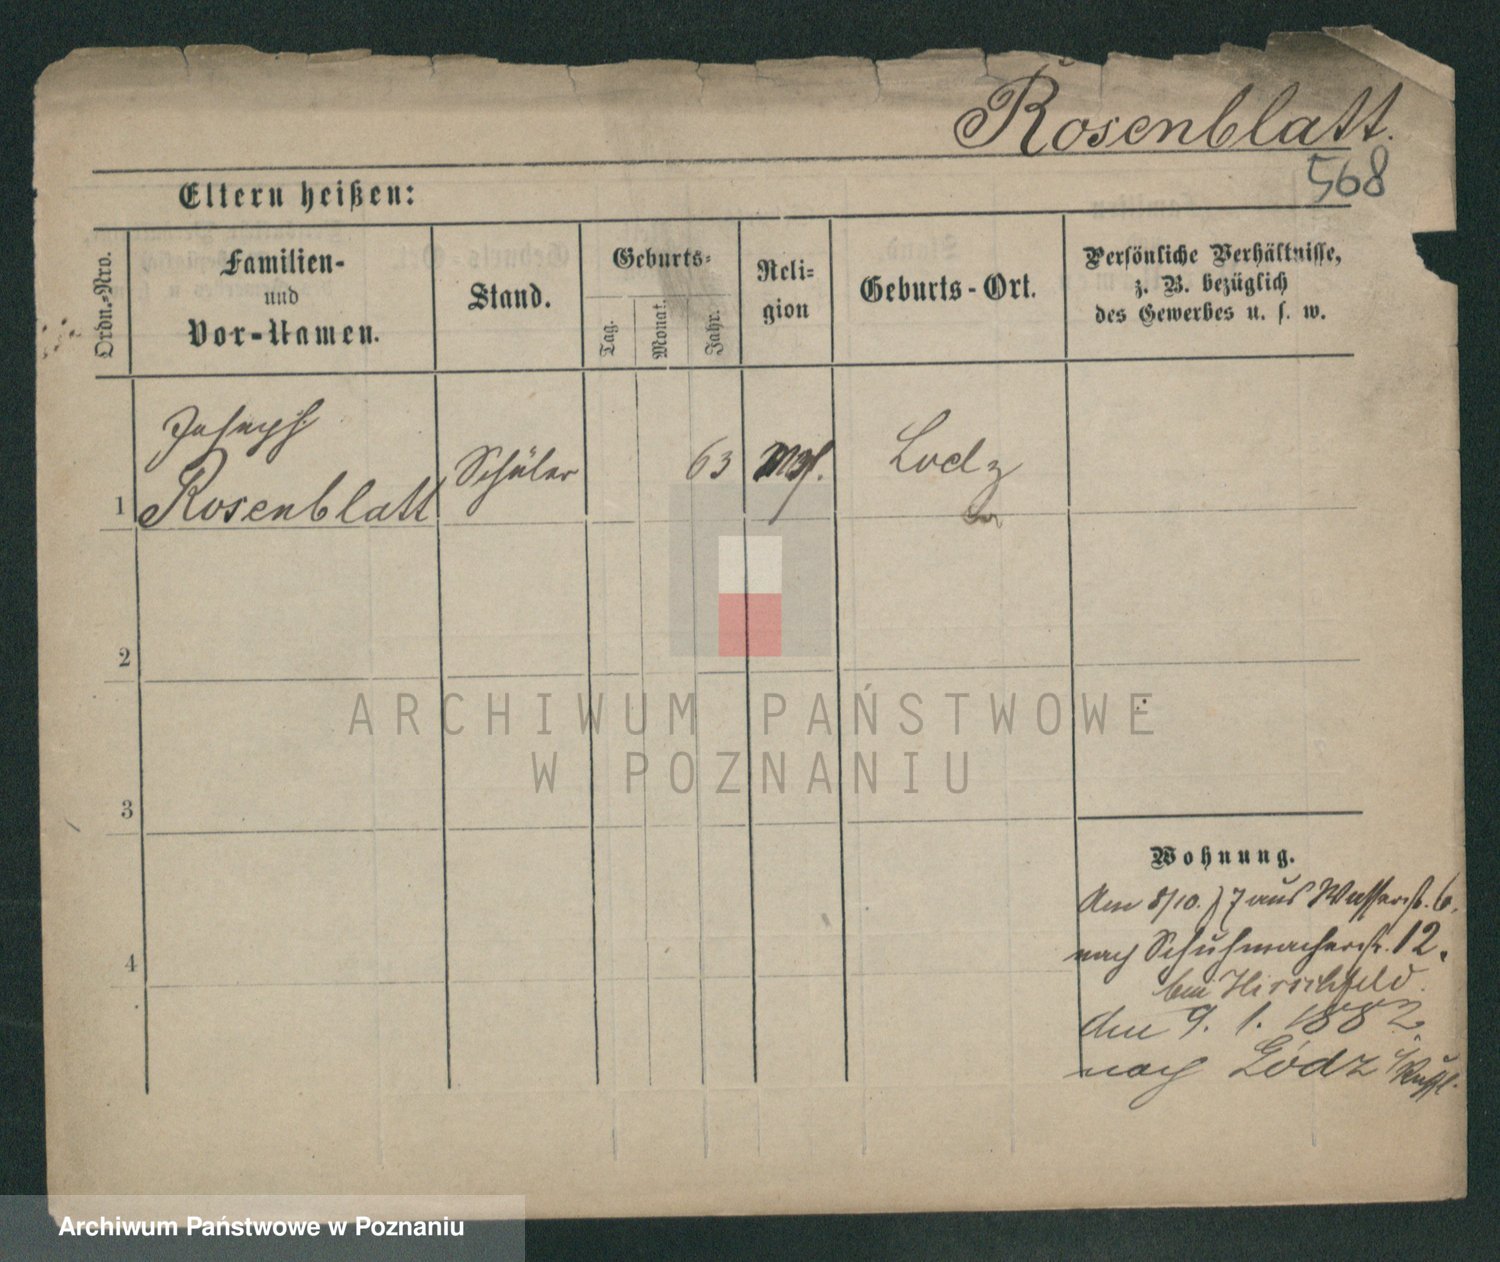 Rosenblatt.
568
Eltern heißen:
Ordn.-Nro.
Familien-
und
Vor-Namen.
Stand.
Geburts-
Tag.
Monat.
Jahr.
Reli-
gion
Geburts-Ort.
Persönliche Verhältnisse,
z. B. bezüglich
des Gewerbes u. s. w.
Joseph
1 Rosenblatt
Schüler
63
Lodz
2
3
4
Wohnung.
Am 8/10. 77 aus Wasserstr. 6.
nach Schuhmacherstr. 12.
bei Hirschfeld.
den 9. 1. 1882
nach Lódz
ARCHIWUM PAŃSTWOWE
W POZNANIU
Archiwum Państwowe w Poznaniu